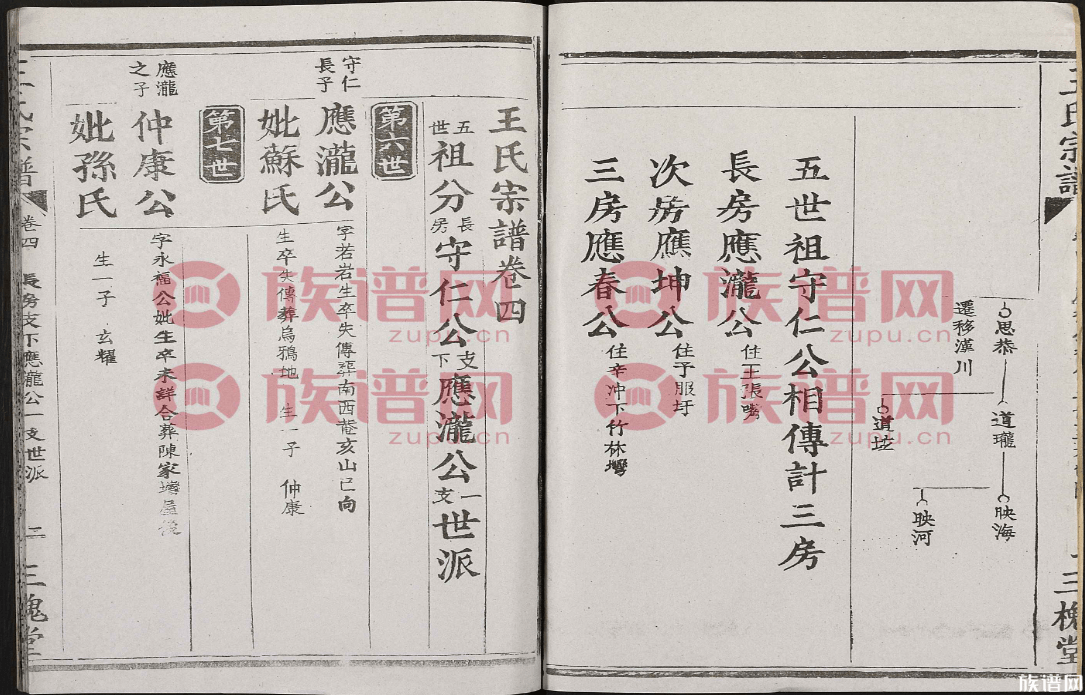 王氏宗譜
三槐堂
思恭
遷移漢川
道瓏
道坣
映海
映河
五世祖守仁公相傳計三房
長房應瀧公 住王張嘴
次房應坤公 住于服圩
三房應春公 住辛冲下竹林塆
王氏宗譜卷四
五世祖分長房守仁公支下應瀧公一支世派
第六世
守仁長子 應瀧公 字若岩生卒失傳葬南西菴亥山巳向
妣蘇氏 生卒失傳葬烏鴉地 生一子 仲康
第七世
應瀧之子 仲康公 字永福公妣生卒未詳合葬陳家塆屋後
妣孫氏 生一子 玄耀
王氏宗譜 卷四 長房支下應瀧公一支世派 三槐堂
族谱网
zupu.cn
族谱网
zupu.cn
族谱网
zupu.cn
族谱网
zupu.cn
族谱网